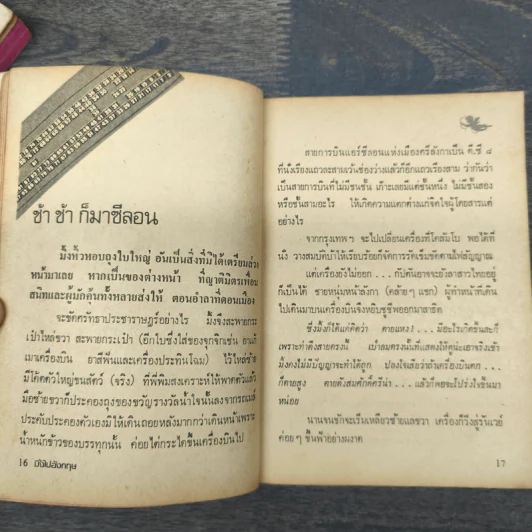 ช้า ช้า ก็มาซีลอน
มิ่งหิ้วหอบถุงใบใหญ่ อันเป็นสิ่งที่มิได้เตรียมล่วง
หน้ามาเลย หากเป็นของต่างหน้า ที่ญาติมิตรเพื่อน
สนิทและผู้มักคุ้นทั้งหลายส่งให้ ตอนอำลาที่ดอนเมือง
จะขัดศรัทธาประชาราษฎร์อย่างไร มิ่งจึงสะพายกระ
เป๋าไหล่ขวา สะพายกระเป๋า (อีกใบซึ่งใส่ของจุกจิกเช่น ยาแก้
เมาเครื่องบิน ยาสีฟันและเครื่องประทินโฉม) ไว้ไหล่ซ้าย
มีโค้ตตัวใหญ่ขนสัตว์ (จริง) ที่พี่พิมสงเคราะห์ให้พาดตัวแล้ว
มือซ้ายขวาก็ประคองถุงของขวัญรางวัลน้ำใจนั้นลงจากรถเมล์
ประคับประคองตัวเองมิให้เดินถอยหลังมากกว่าเดินหน้าเพราะ
น้ำหนักข้าวของบรรทุกนั้น ค่อยไต่กระไดขึ้นเครื่องบินไป
16 มิ่งไปอังกฤษ
สายการบินแอร์ซีลอนแห่งเมืองศรีลังกาเป็น ดี.ซี ๘
ที่นั่งเรียงแถวละสามเว้นช่องว่างแล้วก็อีกแถวเรียงสาม ว่ากันว่า
เป็นสายการบินที่ไม่มีชนชั้น เก๊าะเลยมีแค่ชั้นหนึ่ง ไม่มีชั้นสอง
หรือชั้นสามอะไร ให้เกิดความแตกต่างแก่จิตใจผู้โดยสารแต่
อย่างไร
จากกรุงเทพฯ จะไปเปลี่ยนเครื่องที่โคลัมโบ พอได้ที่
นั่ง วางสมบัติบ้าให้เรียบร้อยก็จัดการรัดเข็มขัดตามไฟสัญญาณ
แต่เครื่องยังไม่ออก . . .
ก็เป็นได้ ชายหนุ่มหน้าลังกา (คล้ายๆ แขก) ผู้ทำหน้าที่เดิน
ไปเดินมาบนเครื่องบินจึงหยิบชูชีพออกมาสาธิต
ซึ่งมิ่งก็ได้แต่คิดว่า ตายแหง! . . . มีอะไรเกิดขึ้นละก็
หน่อย
นานจนชักจะเริ่มเหลียวซ้ายแลขวา เครื่องก็วิ่งสู่รันเวย์
ค่อยๆ ขึ้นฟ้าอย่างผงาด
17